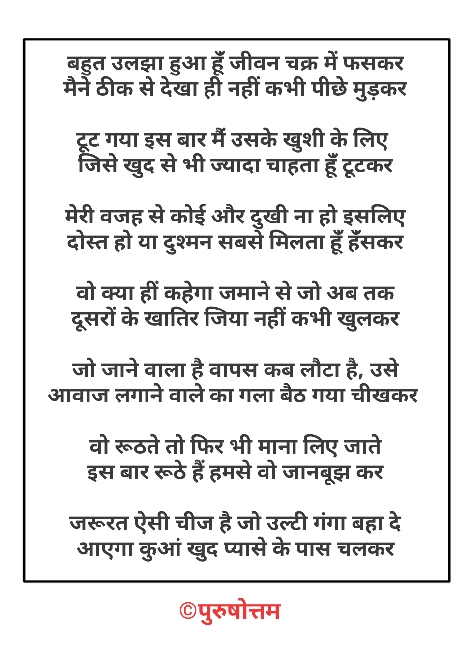 बहुत उलझा हुआ हूँ जीवन चक्र में फसकर
मैने ठीक से देखा ही नहीं कभी पीछे मुड़कर
टूट गया इस बार मैं उसके खुशी के लिए
जिसे खुद से भी ज्यादा चाहता हूँ टूटकर
मेरी वजह से कोई और दुखी ना हो इसलिए
दोस्त हो या दुश्मन सबसे मिलता हूँ हँसकर
वो क्या हीं कहेगा जमाने से जो अब तक
दूसरों के खातिर जिया नहीं कभी खुलकर
जो जाने वाला है वापस कब लौटा है, उसे
आवाज लगाने वाले का गला बैठ गया चीखकर
वो रूठते तो फिर भी माना लिए जाते
इस बार रूठे हैं हमसे वो जानबूझ कर
जरूरत ऐसी चीज है जो उल्टी गंगा बहा दे
आएगा कुआं खुद प्यासे के पास चलकर
©पुरुषोत्तम